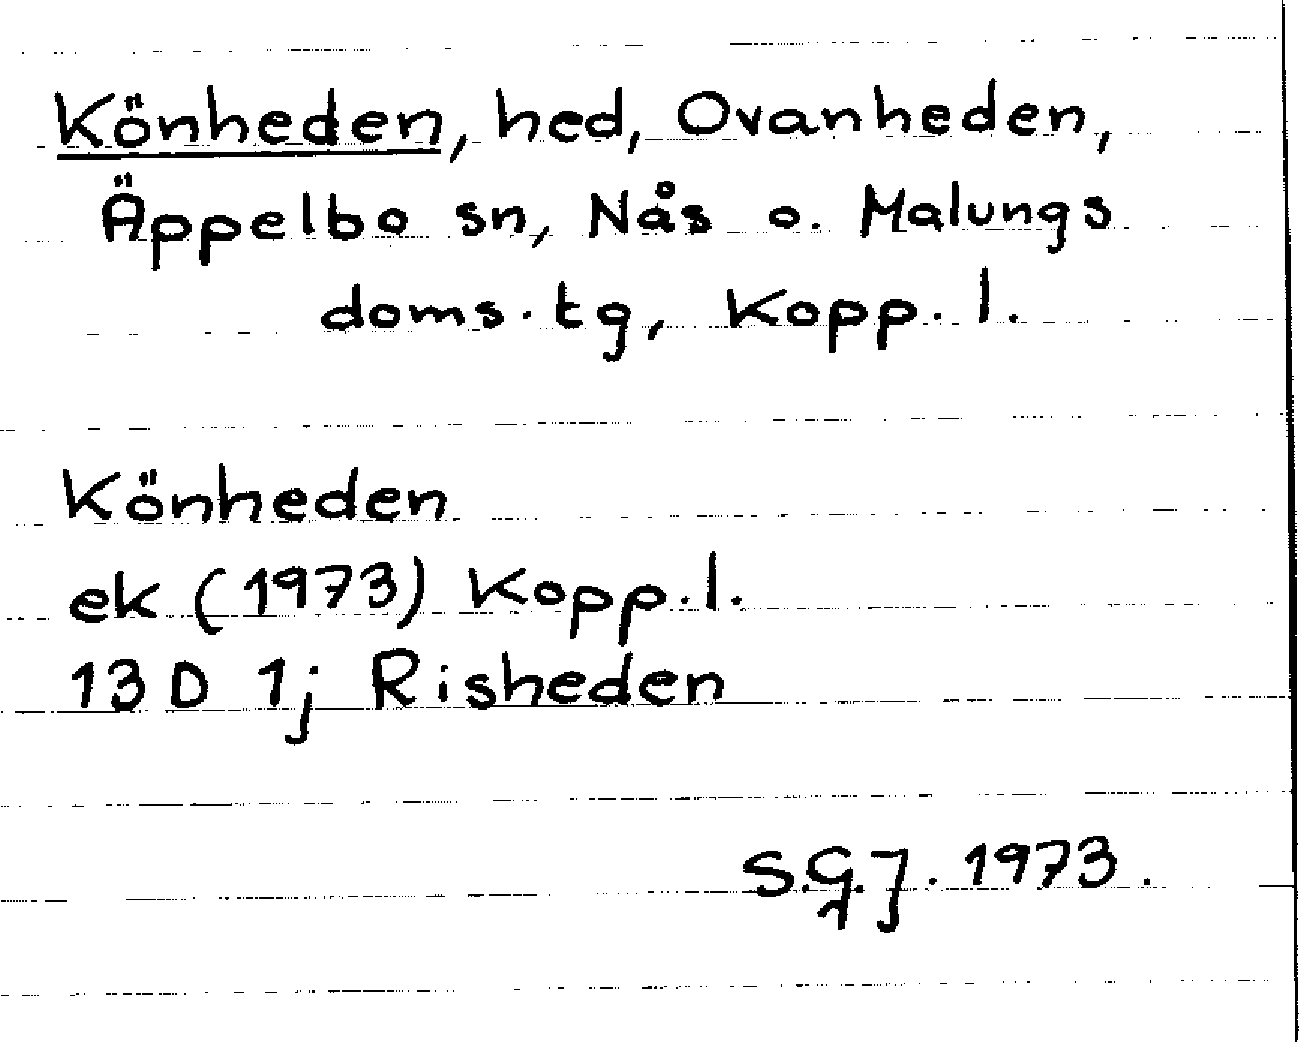 Könheden, hed, Ovanheden,
Äppelbo sn, Nås o. Malungs
doms. tg, Kopp. l.
Könheden
ek (1973) Kopp. l.
13 D 1j Risheden
S.G.J. 1973.